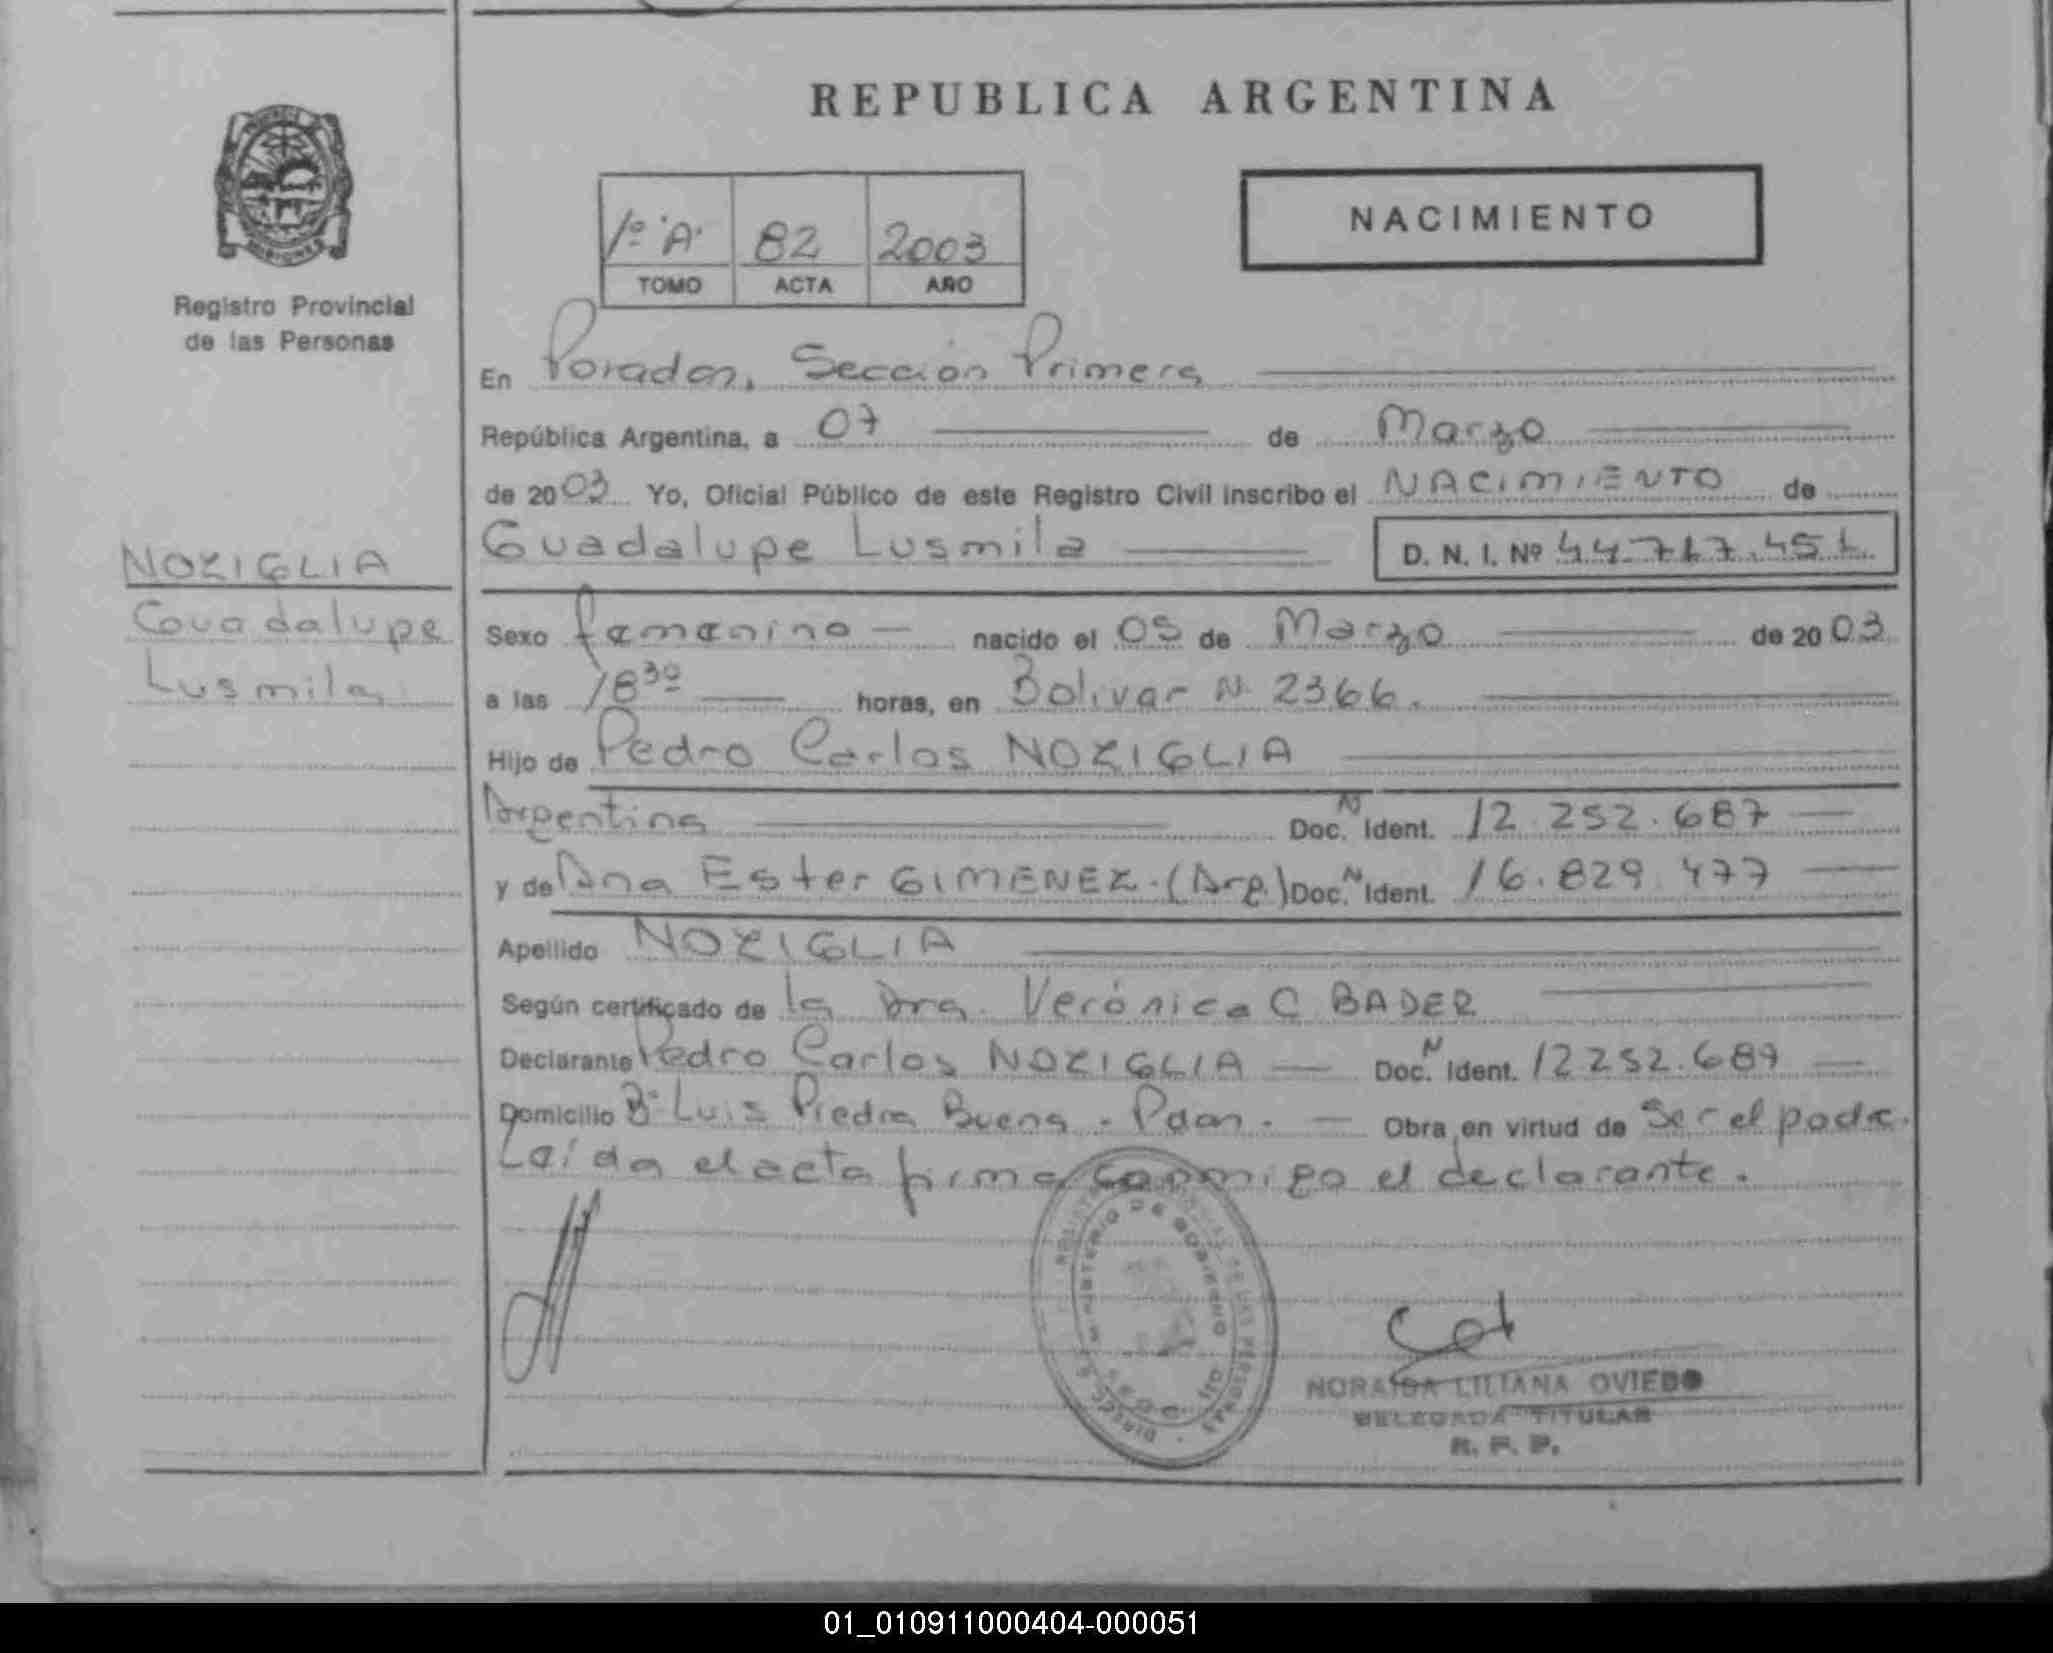 REPUBLICA ARGENTINA
NACIMIENTO
1º "A" 82 2003
TOMO ACTA AÑO
Registro Provincial
de las Personas
En Posadas, Sección Primera
República Argentina, a 07 de Marzo
de 2003 Yo, Oficial Público de este Registro Civil inscribo el NACIMIENTO de
Guadalupe Lusmila D. N. I. Nº
NOZIGLIA
Guadalupe
Lusmila
Sexo femenino nacido el 05 de Marzo de 2003
a las 18 30 horas, en Bolivar Nº 2366.
Hijo de Pedro Carlos NOZIGLIA
Argentina Doc. N Ident. 12.252.687
y de Ana Ester GIMENEZ. (Arg.) Doc. N Ident. 16.829.477
Apellido NOZIGLIA
Según certificado de la Dra. Verónica C BADER
Declarante Pedro Carlos NOZIGLIA Doc. N Ident. 12252.687
Domicilio Bº Luis Piedra Buena - Pdas. Obra en virtud de Ser el padre.
Leída el acta firma conmigo el declarante.
MINISTERIO DE GOBIERNO
NORAIDA LILIANA OVIEDO
DELEGADA TITULAR
R. P. P.
01_010911000404-000051